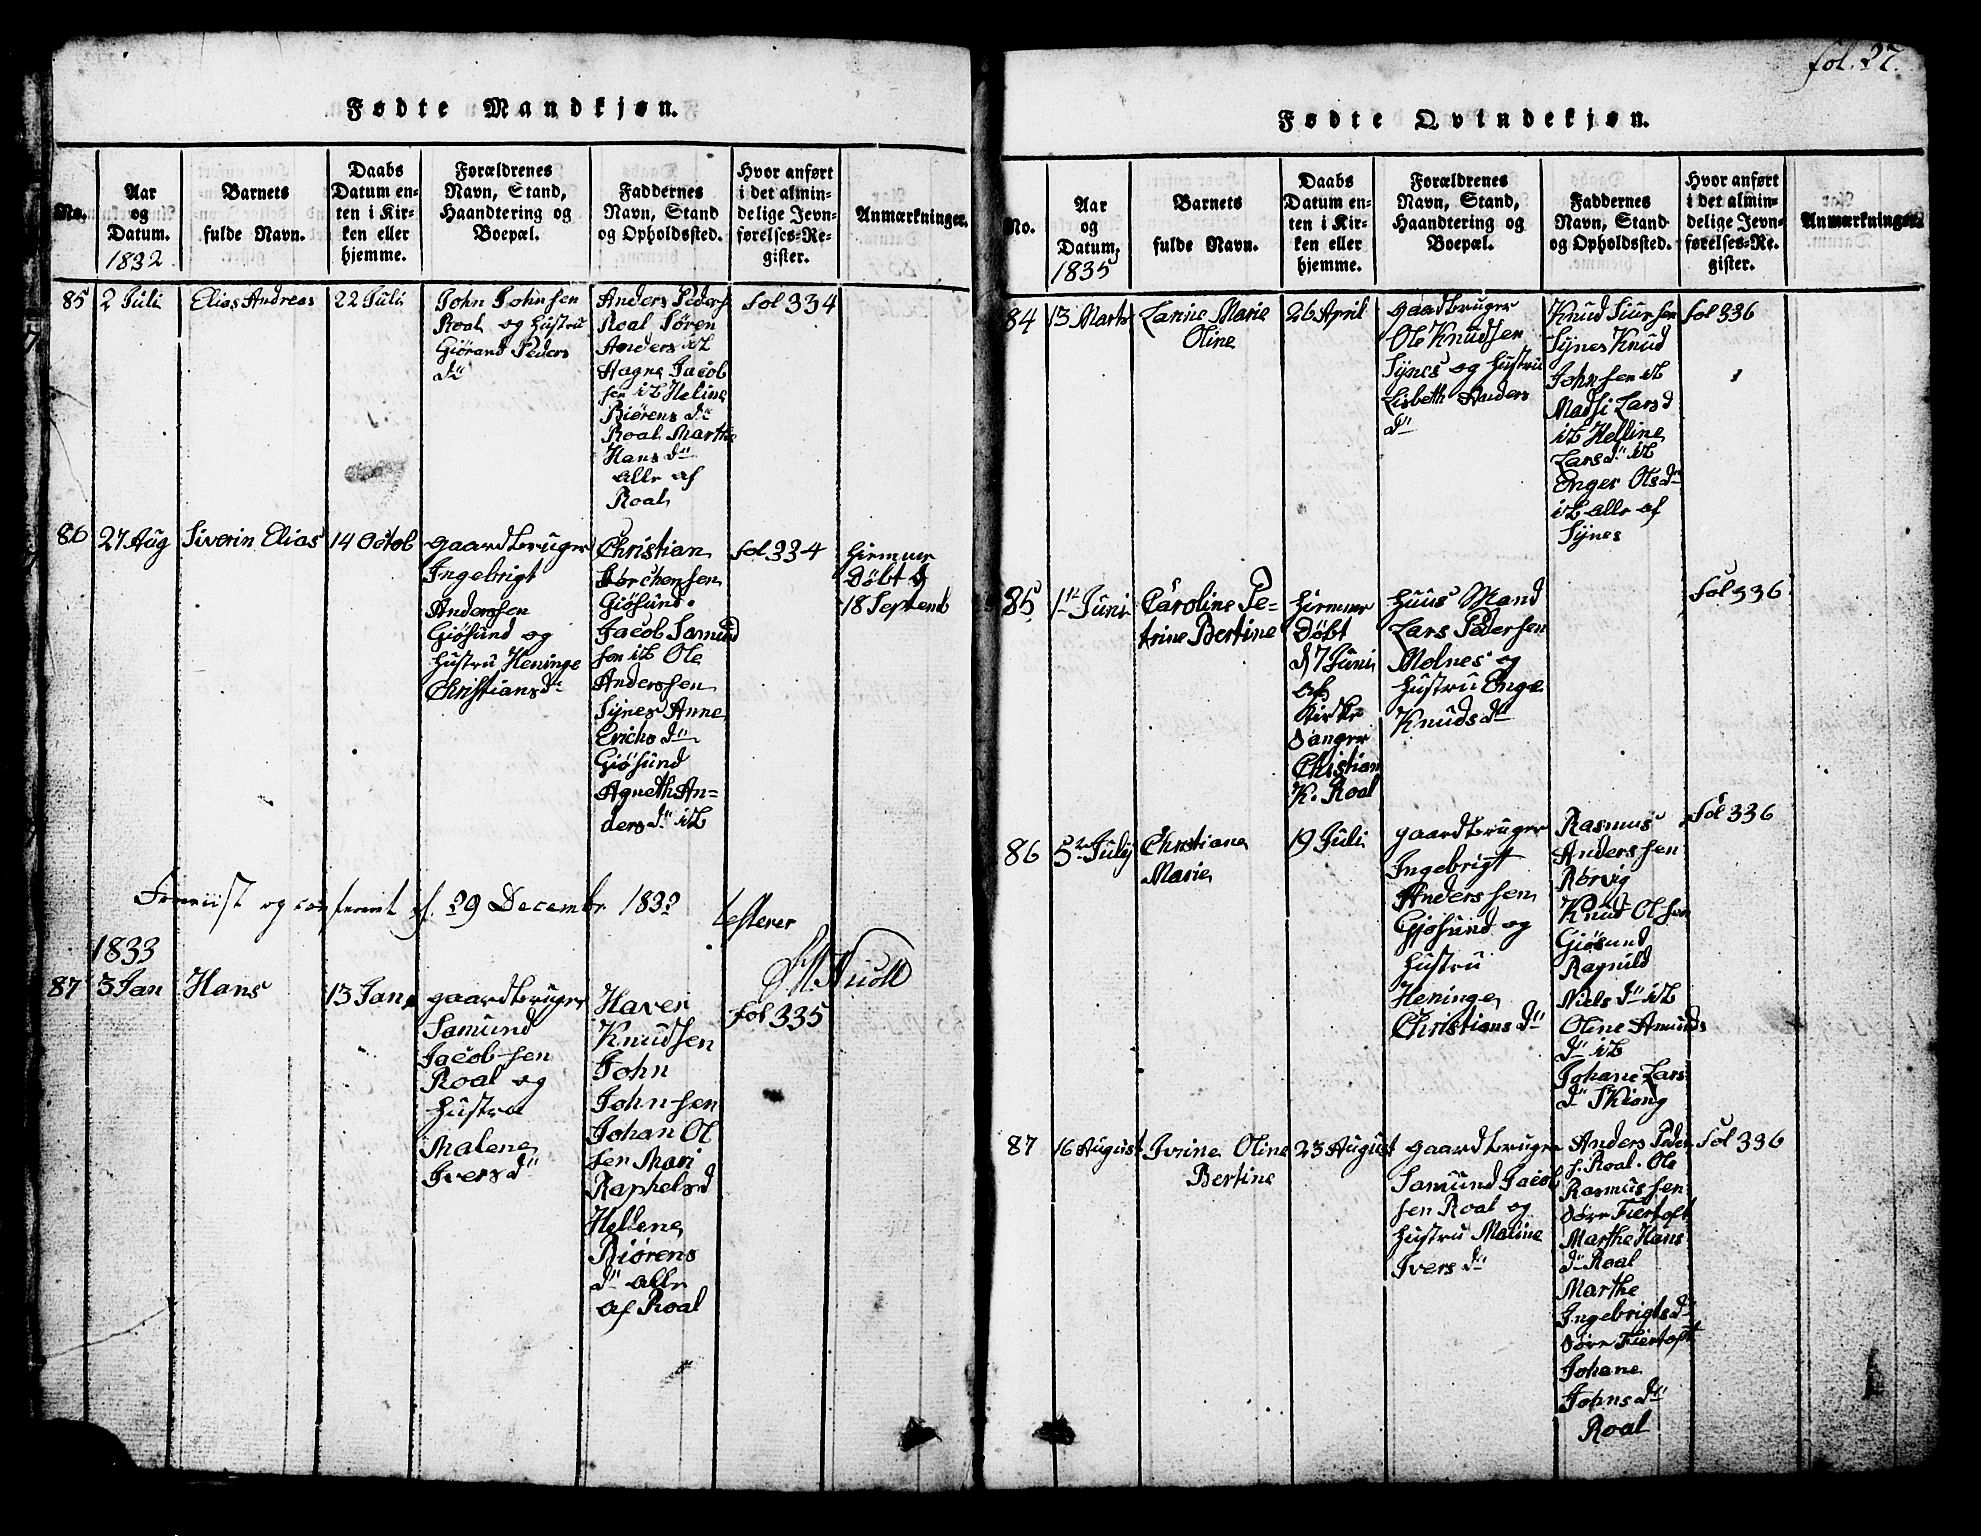 fol. 27.
Fødte Mandkjøn.
No.
Aar
og
Datum.
1832
Barnets
fulde Navn.
Daabs
Datum en-
ten i Kir-
ken eller
hjemme.
Forældrenes
Navn, Stand,
Haandtering og
Boepæl.
Faddernes
Navn, Stand
og Opholdssted.
Hvor anført
i det almin-
delige Jevn-
førelses-Re-
gister.
Anmærkninger.
85
2 Juli
Elias Andreas
22 Juli
John Johnsen
Roal og Hustru
Giørand Peders
dr
Anders Peders
Roal Søren
Anders itb
Aagne Jacob
sen itb Heline
Biørens dr
Roal Marthe
Hans dr
alle af
Roal
fol 334
86
27 Aug
Siverin Elias
14 Octob
gaardbruger
Ingebrigt
Anderssen
Giøsund og
Hustru Heninge
Christiansdr
Christian
Giøsund.
Jacob Samund
sen itb Ole
Anderssen
Synes Anne
Erichs dr
Giøsund
Agneth An=
ders dr itb
fol 334
Hiemmer
Døbt d
18 Septemb
og conferert 29 Decembr 1832 testerer
1833
87
3 Jan
Hans
13 Jan
gaardbruger
Samund
Jacobsen
Roal og
Hustru
Malene
Ivers dr
Haver
Knudsen
John
Johnsen
Johan Ol
sen Mari
Raphelsd
Hellene
Biørens
dr alle
af Roal
fol 335
Fødte Qvindekjøn.
No.
Aar
og
Datum,
1835
Barnets
fulde Navn.
Daabs
Datum en-
ten i Kir-
ken eller
hjemme.
Forældrenes
Navn, Stand,
Haandtering og
Boepæl.
Faddernes
Navn, Stand
og Opholdssted.
Hvor anført
i det almin-
delige Jevn-
førelses-Re-
gister.
Anmærkninger.
84
13 Marts
Larine Marie
Oline
26 April
gaardbruger
Ole Knudsen
Synes og Hustru
Lisbeth Anders
dr
Knud Siursen
Synes Knud
Johnsen itb
Madsi Lars d
itb Helline
Lars dr itb
Enger Ols dr
itb alle af
Synes
fol 336
85
1ste Juni
Caroline Pe=
trine Bertine
Hiemmer
Døbt
d 7 Juni
af
Kirke
Sanger
Christian
K. Roal
Huus Mand
Lars Pedersen
Molnes og
Hustru Enge
Knuds dr
fol 336
86
5te July
Christiane
Marie
19 Juli
gaardbruger
Ingebrigt
Anderssen
Gjøsund og
Hustru
Heninge
Christians dr
Rasmus
Anderssen
Rørvig
Knud Olsen
Giøsund
Ragnild
Niels dr itb
Oline Amunds
dr itb
Johane Lars
dr Skiong
fol 336
87
16 August
Ivrine Oline
Bertine
23 August
gaardbruger
Samund Jacob
sen Roal og
Hustru Maline
Ivers dr
Anders Peder
s. Roal. Ole
Rasmussen
Søre Fiertoft
Marthe Hans
dr Roal
Marthe
Ingebrigts dr
Søre Fiertoft
Johane
Johns dr
Roal
fol 336